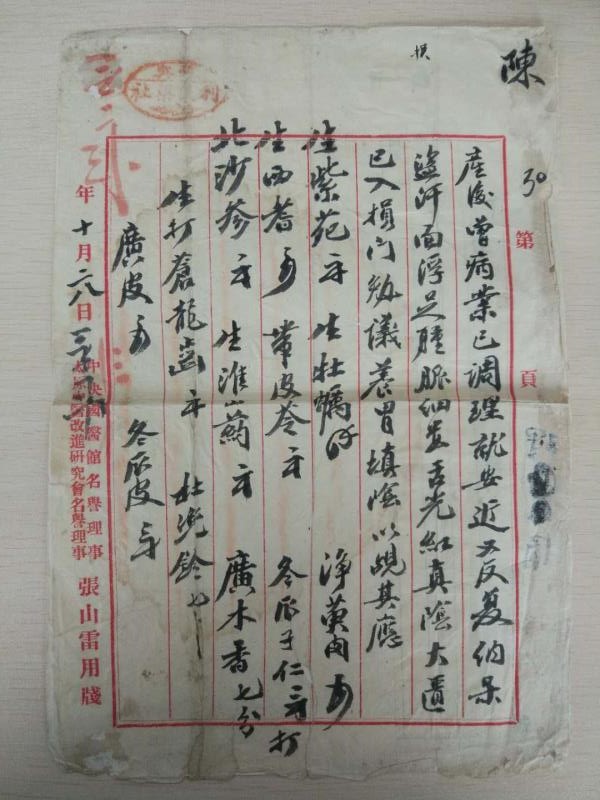 陳
30
第 頁
產後曾病業已調理就安近又反复納呆
盜汗面浮足腫脈細舌光紅真陰大匱
已入損門勉議養胃填陰以覘其應
生紫苑 生牡蠣 淨萸肉
生西耆 帶皮苓 冬瓜子仁 打
北沙參 生淮山藥 廣木香七分
生打蒼龍齒 杜兜鈴
廣皮 冬瓜皮
年十月六八日
中央國醫館名譽理事
醫改進研究會名譽理事
張山雷用牋